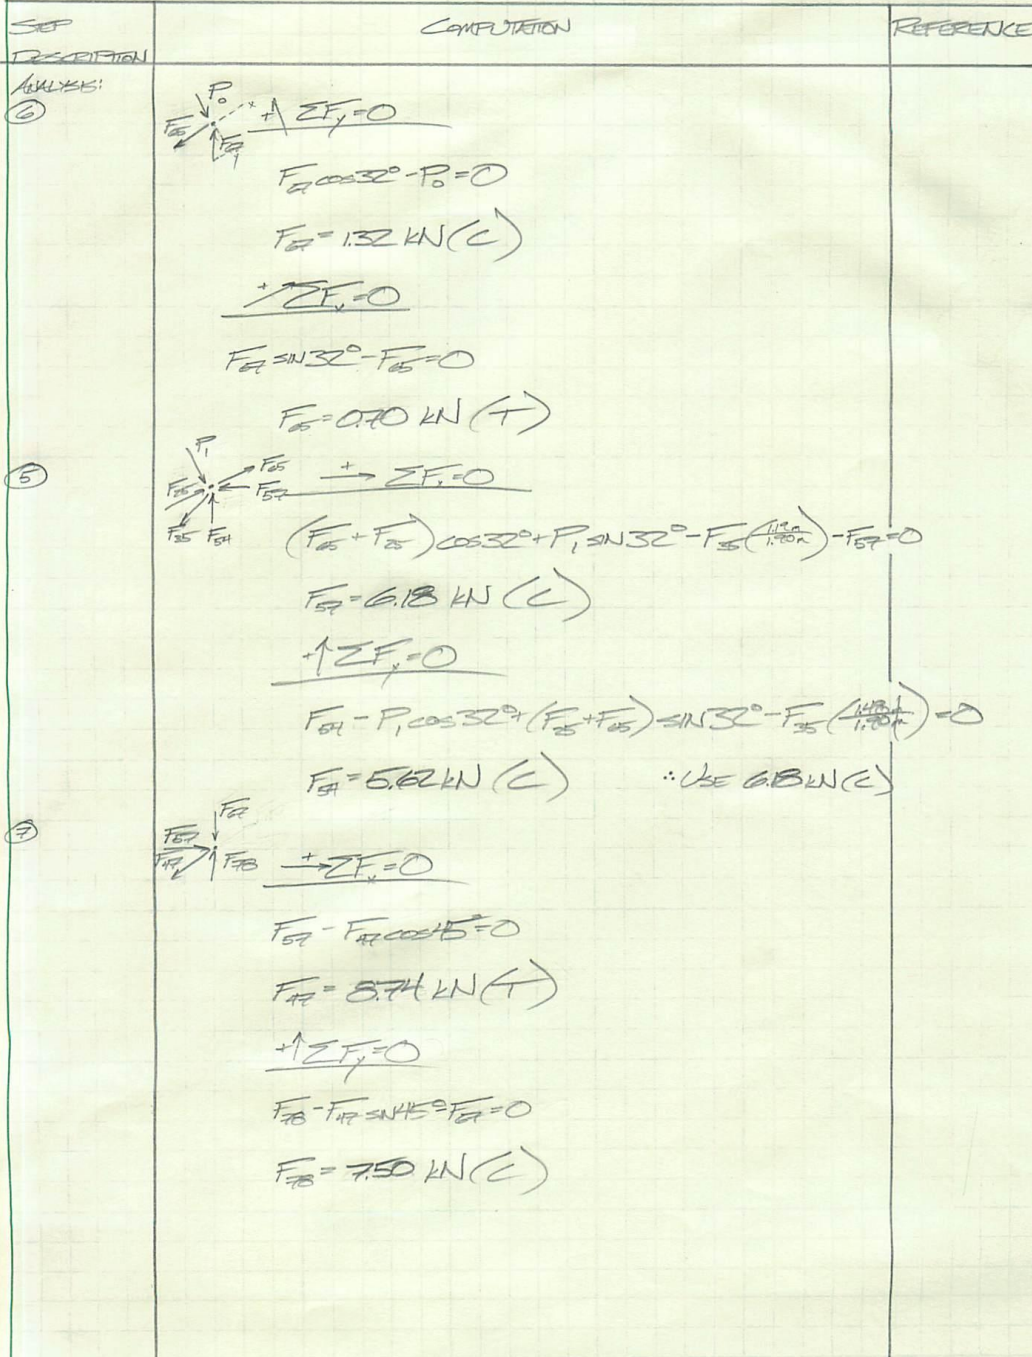 STEP DESCRIPTION
COMPUTATION
REFERENCE
ANALYSIS:
6
P₀
x
F₆₅
F₆₇
y
+↑ ΣFy=0
F₆₇cos32°-P₀=0
F₆₇=1.32 kN (C)
+↗ΣFx=0
F₆₇ sin32°-F₆₅=0
F₆₅=0.70 kN (T)
5
P₁
F₆₅
F₂₅
F₅₇
F₃₅
F₅₄
+→ ΣFx=0
(F₆₅+F₂₅)cos32°+P₁sin32°-F₃₅(1.19m/1.90m)-F₅₇=0
F₅₇=6.18 kN (C)
+↑ΣFy=0
F₅₄-P₁cos32°+(F₂₅+F₆₅)sin32°-F₃₅(1.48m/1.90m)=0
F₅₄=5.62 kN (C) ∴ USE 6.18 kN (C)
7
F₆₇
F₅₇
F₄₇
F₇₈
+→ΣFx=0
F₅₇-F₄₇cos45°=0
F₄₇=8.74 kN (T)
+↑ΣFy=0
F₇₈-F₄₇sin45°-F₆₇=0
F₇₈=7.50 kN (C)